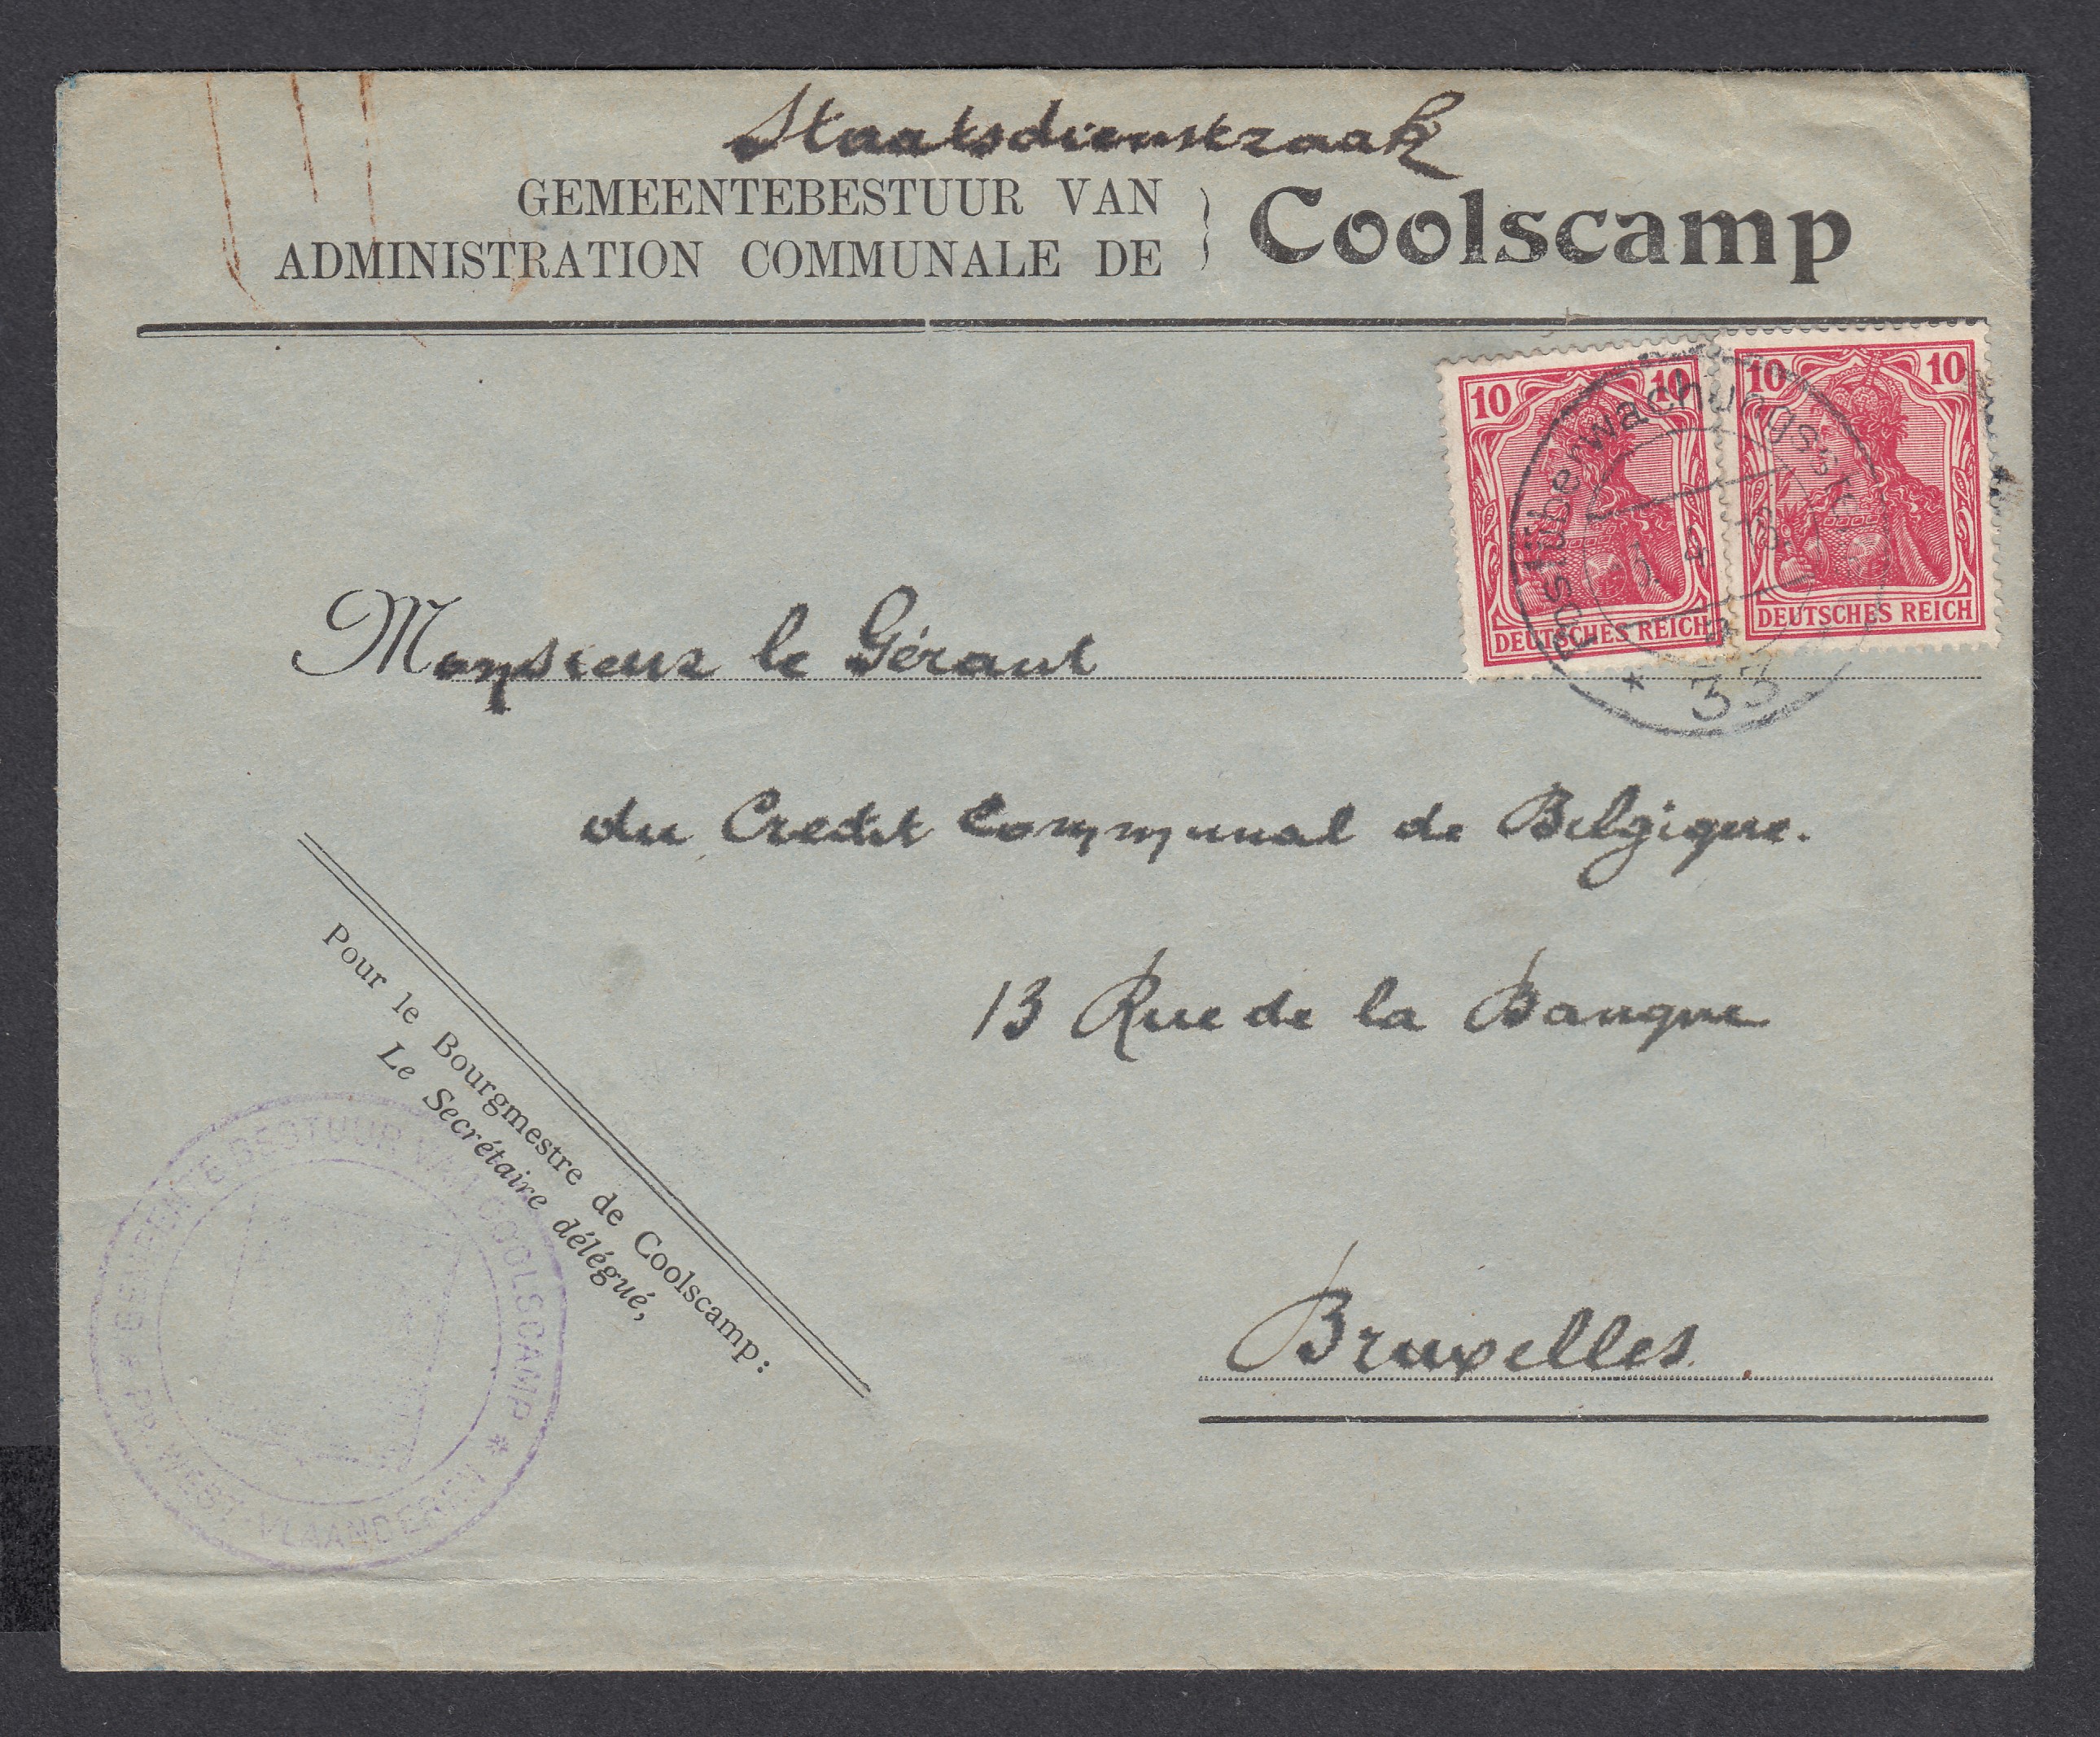 Staatsdienstzaak
GEMEENTEBESTUUR VAN
ADMINISTRATION COMMUNALE DE
Coolscamp
10 10
DEUTSCHES REICH
10 10
DEUTSCHES REICH
Postüberwachungsst
4
* 33
Monsieur le Gérant
du Credit Communal de Belgique.
13 Rue de la Banque
Bruxelles.
Pour le Bourgmestre de Coolscamp:
Le Secrétaire délégué,
GEMEENTE BESTUUR VAN COOLSCAMP
* PR. WEST-VLAANDEREN *